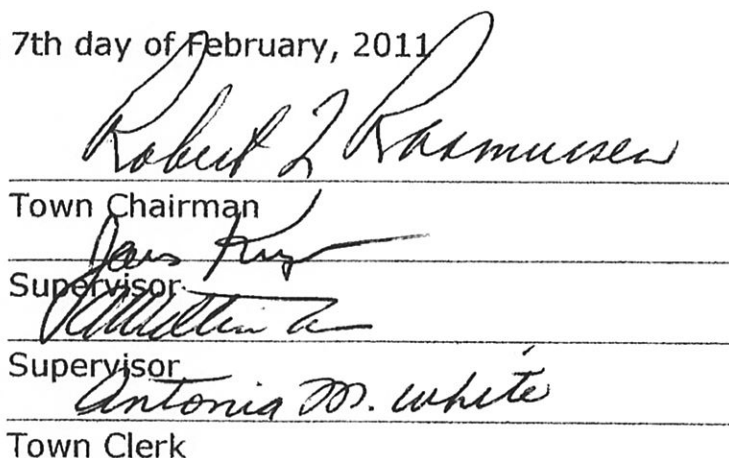 7th day of February, 2011
Robert L Rasmussen
Town Chairman
Supervisor
Supervisor
Antonia M. White
Town Clerk